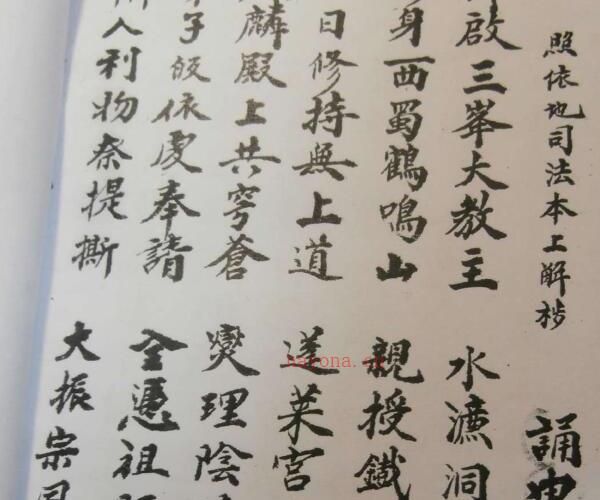 照依地司法本上解 誦
啟三峯大教主 水濂洞
身西蜀鶴鳴山 親授鐵
日修持無上道 蓬萊宮
麟殿上共穹蒼 燮理陰
子皈依虔奉請 全憑祖
人利物奈提撕 大振宗